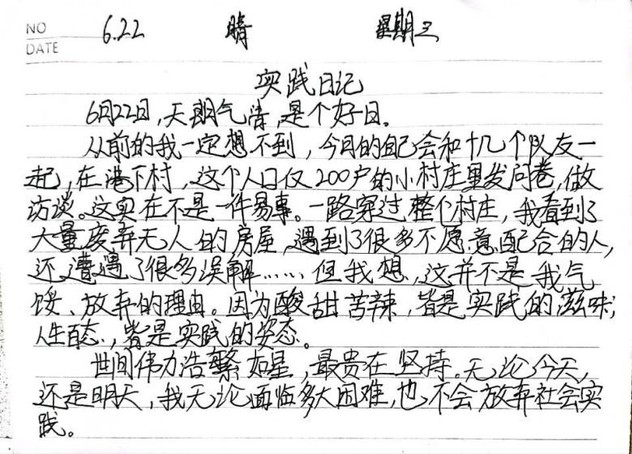 NO
DATE
6.22 晴 星期三
实践日记
6月22日,天朗气清,是个好日。
从前的我一定想不到,今日的自己会和十几个队友一
起,在港下村,这个人口仅200户的小村庄里发问卷,做
访谈。这实在不是一件易事。一路穿过整个村庄,我看到了
大量废弃无人的房屋,遇到了很多不愿意配合的人,
还遭遇了很多误解……但我想,这并不是我气
馁、放弃的理由。因为酸甜苦辣,皆是实践的滋味;
人生百态,皆是实践的姿态。
世间伟力浩繁如星,最贵在坚持。无论今天,
还是明天,我无论面临多大困难,也不会放弃社会实
践。